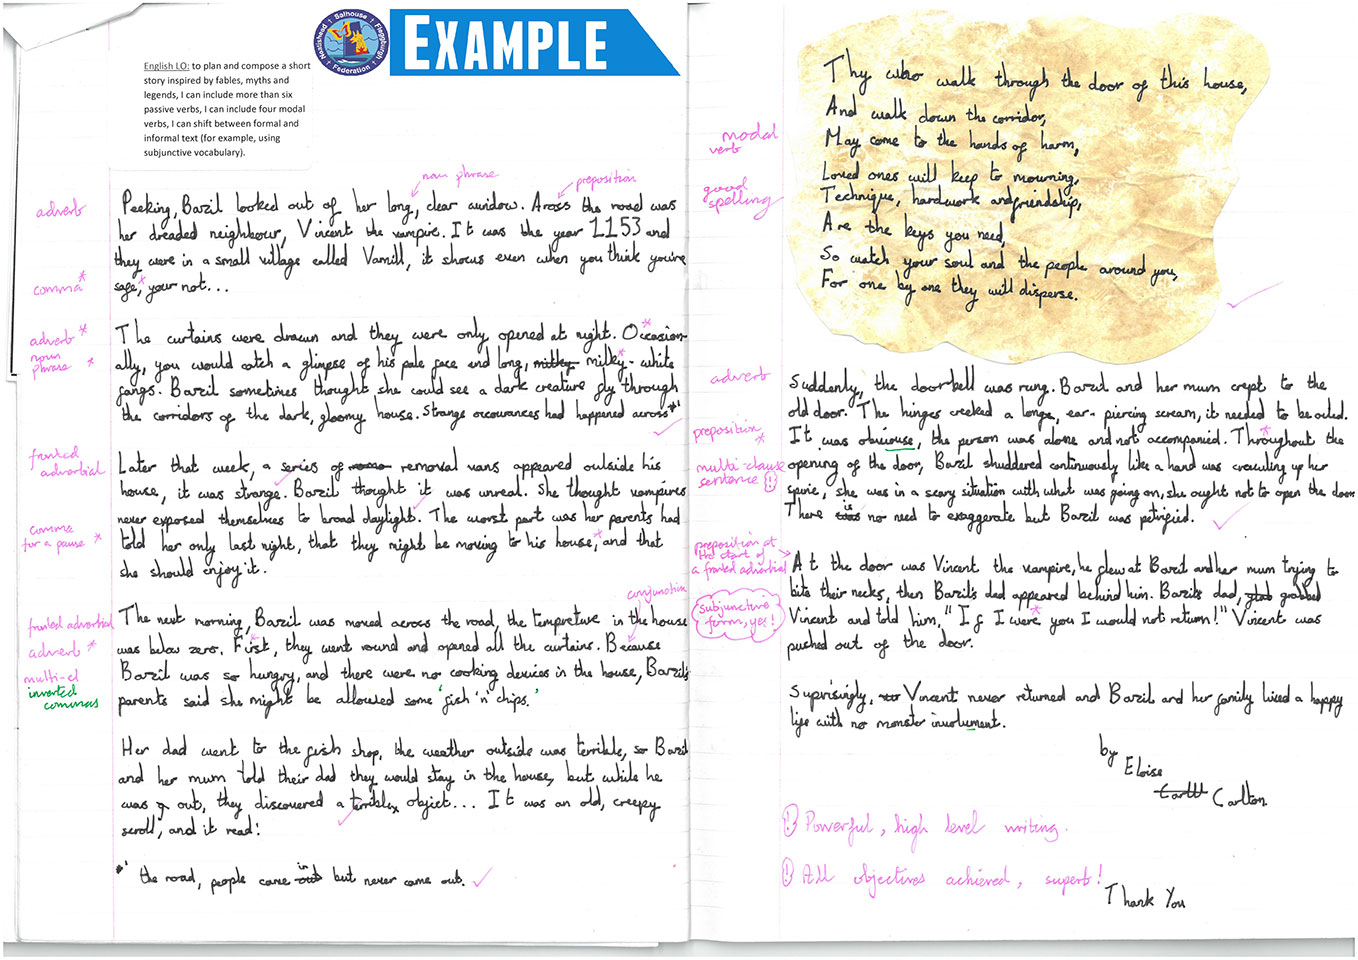 Nailishead Salhouse Fleggburgh
Federation
EXAMPLE
English LO: to plan and compose a short
story inspired by fables, myths and
legends, I can include more than six
passive verbs, I can include four modal
verbs, I can shift between formal and
informal text (for example, using
subjunctive vocabulary).
noun phrase
preposition
adverb
Peeking, Bazil looked out of her long, clear window. Across the road was
her dreaded neighbour, Vincent the vampire. It was the year 1153 and
they were in a small village called Vamill, it shows even when you think you're
comma *
safe,* your not...
adverb *
The curtains were drawn and they were only opened at night. Occasion-
noun
phrase *
ally, you would catch a glimpse of his pale face and long, milky milky - white
fangs. Bazil sometimes thought she could see a dark creature fly through
the corridors of the dark, gloomy house. Strange occurances had happened across *1
fronted
adverbial
Later that week, a series of removal vans appeared outside his
house, it was strange. Bazil thought it was unreal. She thought vampires
never exposed themselves to broad daylight. The worst part was her parents had
comma
for a pause *
told her only last night, that they might be moving to his house,* and that
she should enjoy it.
conjunction
fronted adverbial
The next morning, Bazil was moved across the road, the tempreture in the house
adverb *
was below zero. First, they went round and opened all the curtains. Because
multi-cl
Bazil was so hungry, and there were no cooking devices in the house, Bazil's
inverted
commas
parents said she might be allowed some 'fish 'n' chips.'
Her dad went to the fish shop, the weather outside was terrible, so Bazil
and her mum told their dad they would stay in the house, but while he
was out, they discovered a terrible object... It was an old, creepy
scroll, and it read:
*1 the road, people came out in but never came out.
Thy who walk through the door of this house,
And walk down the corridor,
modal
verb
May come to the hands of harm,
Loved ones will keep to mourning,
good
spelling
Technique, hardwork and friendship,
Are the keys you need,
So watch your soul and the people around you,
For one by one they will disperse.
adverb
Suddenly, the doorbell was rung. Bazil and her mum crept to the
old door. The hinges creeked a longe, ear - piercing scream, it needed to be oiled.
preposition *
It was obviouse, the person was alone and not accompanied. Throughout the
multi-clause
sentence !
opening of the door, Bazil shuddered continuously like a hand was crawling up her
spine, she was in a scary situation with what was going on, she ought not to open the door.
There was is no need to exaggerate but Bazil was petrified.
preposition at
the start of
a fronted adverbial
At the door was Vincent the vampire, he flew at Bazil and her mum trying to
bite their necks, then Bazil's dad appeared behind him. Bazil's dad, grab grabbed
subjunctive
form, yes!
Vincent and told him, "If I were you I would not return!" Vincent was
pushed out of the door.
Suprisingly, Vincent never returned and Bazil and her family lived a happy
life with no monster involument.
by
Eloise
Carlton
! Powerful, high level writing.
! All objectives achieved, superb!
Thank You